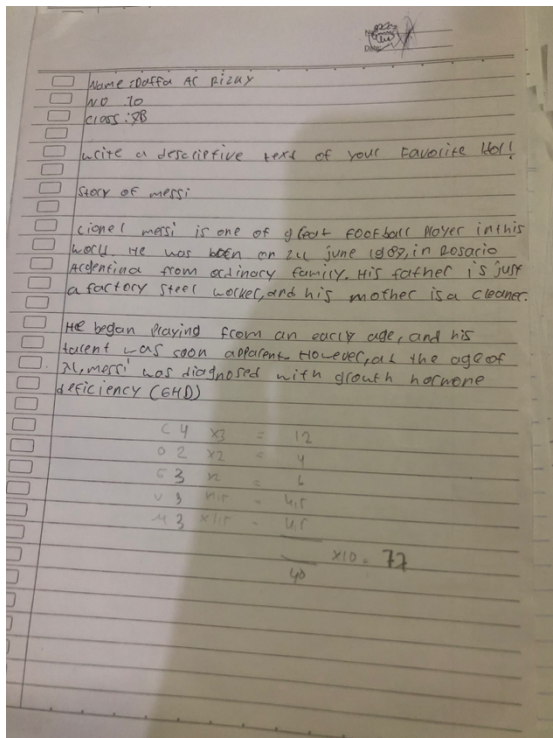 Name : Daffa Al Rizky
NO 10
Class : 9B
Write a descriptive text of your favorite Idol!
Story of messi
Lionel messi is one of great football player in this
world. He was born on 24 june 1987, in Rosario
Argentina from ordinary family. His father is just
a factory steel worker, and his mother is a cleaner.
He began Playing from an early age, and his
talent was soon apparent. However, at the age of
11, messi was diagnosed with growth hormone
deficiency (GHD)
C 4 x3 = 12
O 2 x2 = 4
G 3 x2 = 6
V 3 x1,5 = 4,5
M 3 x1,5 = 4,5
40 x10 = 77